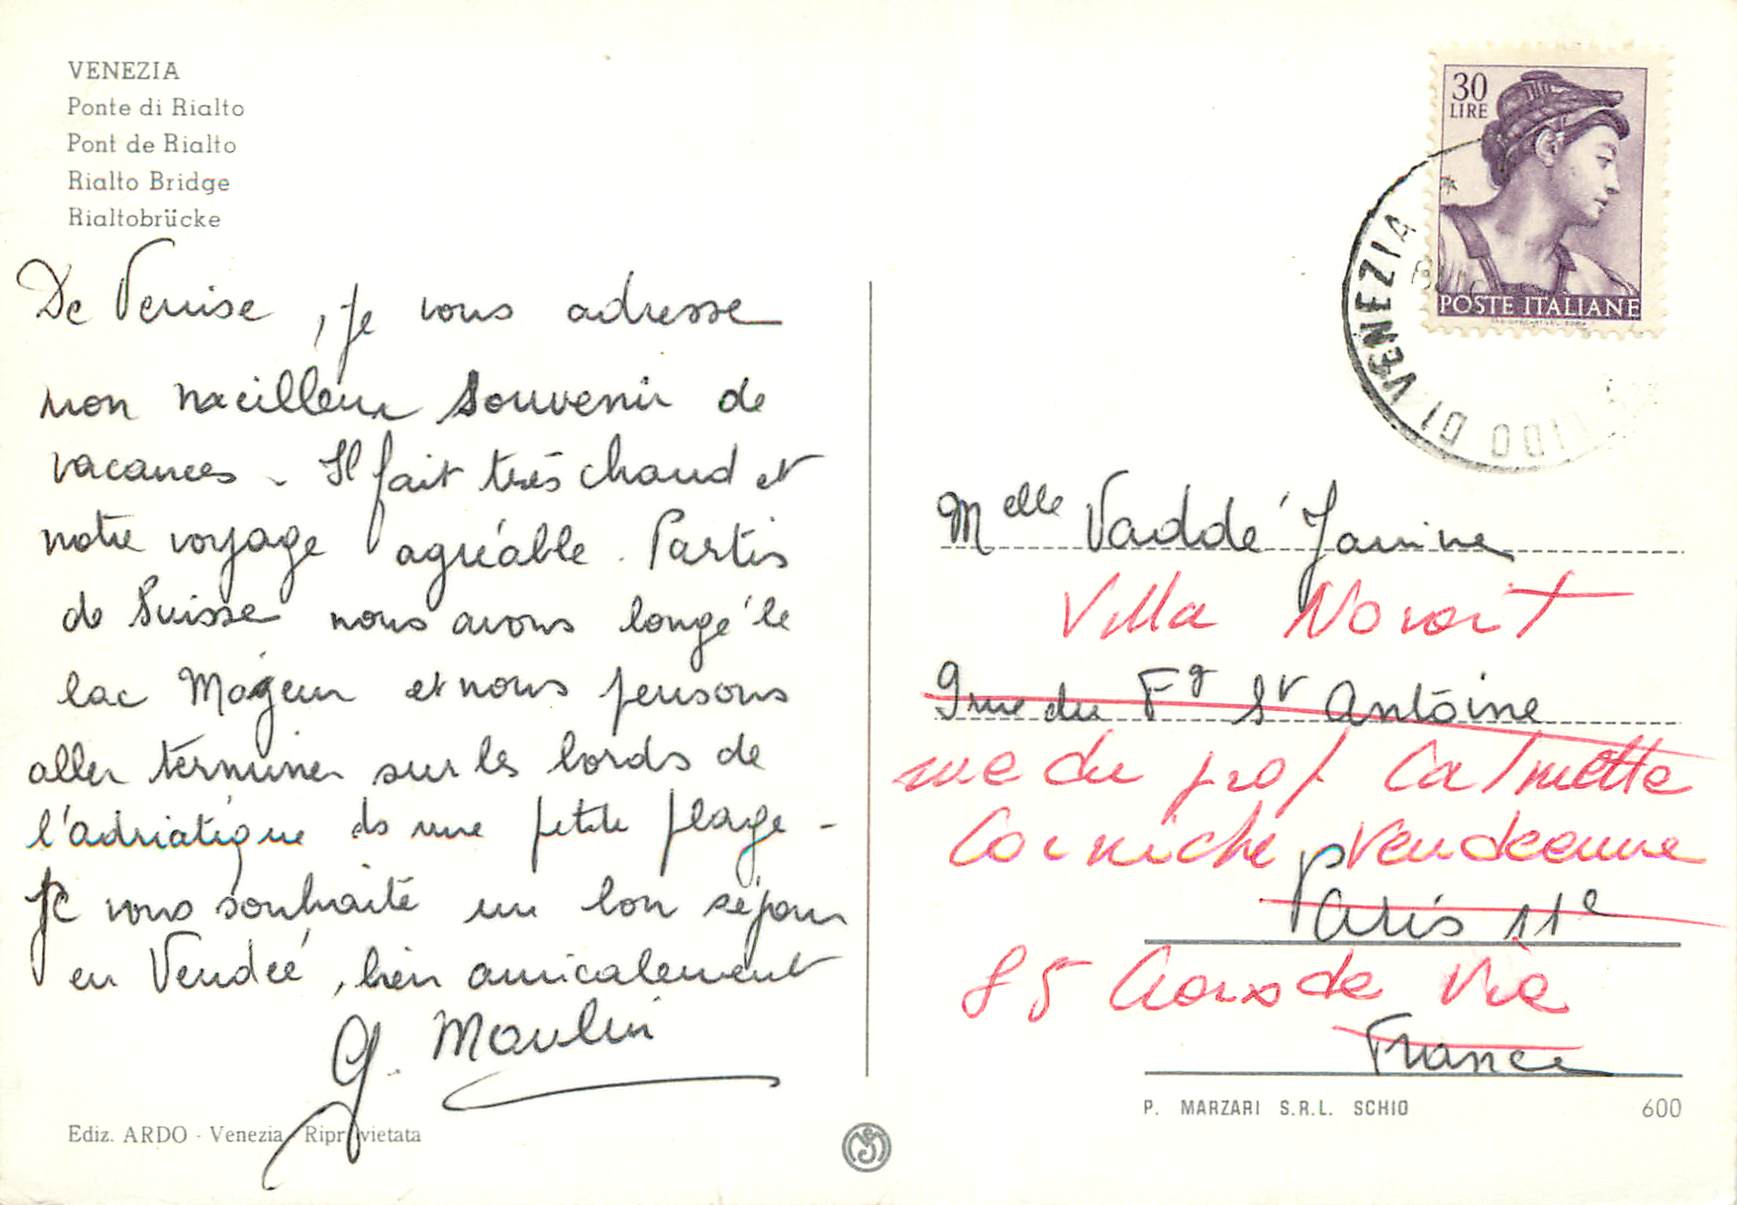 VENEZIA
Ponte di Rialto
Pont de Rialto
Rialto Bridge
Rialtobrücke
De Venise, je vous adresse
mon meilleur souvenir de
vacances. Il fait très chaud et
notre voyage agréable. Partis
de Suisse nous avons longé le
lac Majeur et nous pensons
aller terminer sur les bords de
l'adriatique ds une petite plage -
Je vous souhaite un bon séjour
en Vendée, bien amicalement
G. Moulin
Ediz. ARDO - Venezia Riprovietata
30
LIRE
POSTE ITALIANE
LIDO DI VENEZIA
Melle Vaddé Janine
Villa
9 rue du Fg St Antoine
rue du prof Calmette
Corniche Vendéenne
Paris 11e
85 Croix de Vie
France
P. MARZARI S.R.L. SCHIO
600